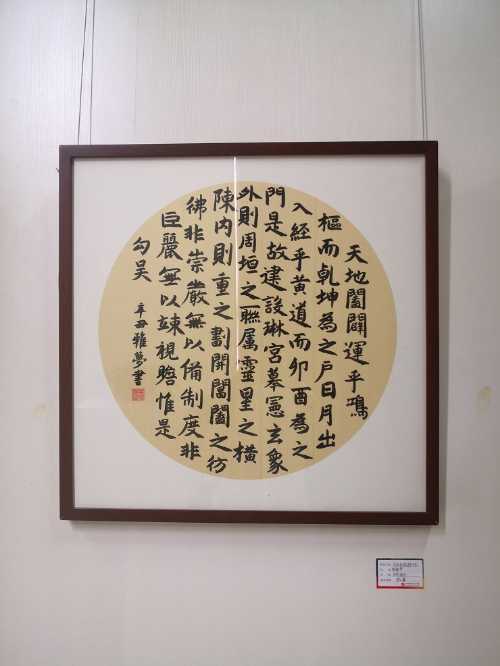 天地闔闢運乎鴻
樞而乾坤為之戶日月出
入經乎黃道而卯酉為之
門是故建設琳宮摹憲玄象
外則周垣之聯屬靈星之橫
陳內則重之劃開閶闔之彷
彿非崇嚴無以備制度非
巨麗無以竦視瞻惟是
勾吳
辛丑雅夢書